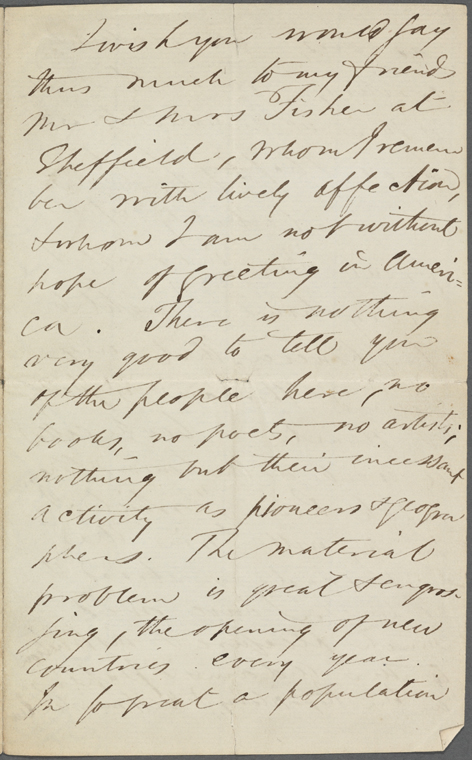 I wish you would say
thus much to my friends
Mr & Mrs Fisher at
Sheffield, whom I remem
ber with lively affection,
& whom I am not without
hope of greeting in Ameri=
ca. There is nothing
very good to tell you
of the people here, no
books, no poets, no artists;
nothing but their incessant
activity as pioneers & geogra
phers. The material
problem is great & engros
sing, the opening of new
countries every year.
In so great a population